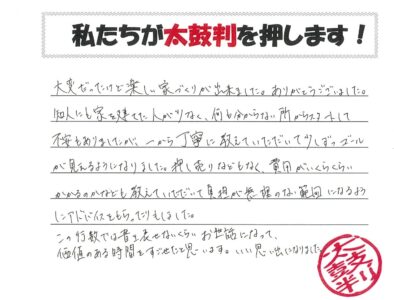 私たちが太鼓判を押します！
大変だったけど楽しい家づくりが出来ました。ありがとうございました。
知人にも家を建てた人が少なく、何も分からない所からスタートして
不安もありましたが、一から丁寧に教えていただいて少しずつゴール
が見えるようになりました。押し売りなどもなく、費用がいくらぐらい
かかるのかなども教えていただいて負担が無理のない範囲になるよう
にアドバイスをもらったりもしました。
この行数では書き表せないくらいお世話になって、
価値のある時間をすごせたと思います。いい思い出になりました。
太鼓判